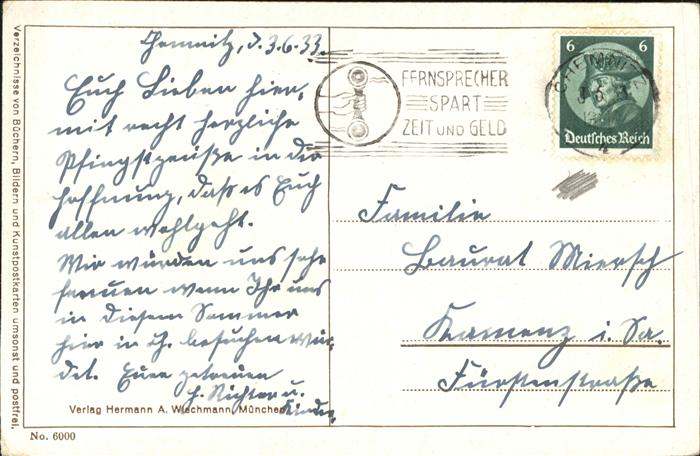 Verzeichnisse von Büchern, Bildern und Kunstpostkarten umsonst und postfrei.
Chemnitz, d. 3.6.33.
Euch Lieben hier,
mit recht herzliche
Pfingstgrüße in die
Hoffnung, daß es Euch
allen wohlgeht.
Wir würden uns sehr
freuen wenn Ihr uns
in diesem Sommer
hier in Ch. besuchen wür-
det. Eure getreuen
H. Richter u.
Kinder.
Verlag Hermann A. Wiechmann, München
No. 6000
FERNSPRECHER
SPART
ZEIT UND GELD
CHEMNITZ
6 6
Deutsches Reich
Familie
Baurat Miersch
Kamenz i. Sa.
Fürstenstraße